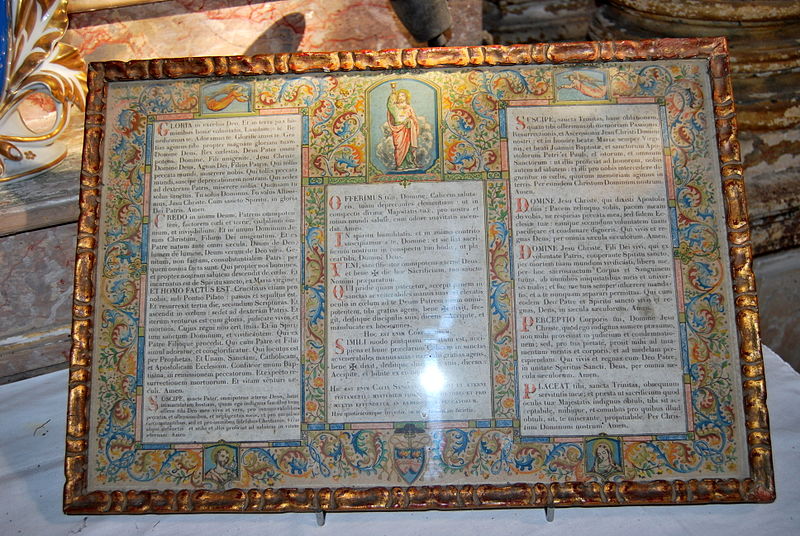 GLORIA in excelsis Deo. Et in terra pax ho-
minibus bonæ voluntatis. Laudamus te. Be-
nedicimus te. Adoramus te. Glorificamus te. Gra-
tias agimus tibi propter magnam gloriam tuam.
Domine Deus, Rex cœlestis, Deus Pater omni-
potens. Domine Fili unigenite, Jesu Christe.
Domine Deus, Agnus Dei, Filius Patris. Qui tollis
peccata mundi, miserere nobis. Qui tollis peccata
mundi, suscipe deprecationem nostram. Qui sedes
ad dexteram Patris, miserere nobis. Quoniam tu
solus sanctus. Tu solus Dominus. Tu solus Altissi-
mus, Jesu Christe. Cum sancto Spiritu, in gloria
Dei Patris. Amen.
CREDO in unum Deum, Patrem omnipoten-
tem, factorem cœli et terræ, visibilium om-
nium, et invisibilium. Et in unum Dominum Je-
sum Christum, Filium Dei unigenitum. Et ex
Patre natum ante omnia sæcula. Deum de Deo,
lumen de lumine, Deum verum de Deo vero. Ge-
nitum, non factum, consubstantialem Patri: per
quem omnia facta sunt. Qui propter nos homines,
et propter nostram salutem descendit de cœlis. Et
incarnatus est de Spiritu sancto, ex Maria virgine:
ET HOMO FACTUS EST. Crucifixus etiam pro
nobis, sub Pontio Pilato: passus et sepultus est.
Et resurrexit tertia die, secundum Scripturas. Et
ascendit in cœlum: sedet ad dexteram Patris. Et
iterum venturus est cum gloria, judicare vivos, et
mortuos. Cujus regni non erit finis. Et in Spiri-
tum sanctum Dominum, et vivificantem: Qui ex
Patre, Filioque procedit. Qui cum Patre et Filio
simul adoratur, et conglorificatur. Qui locutus est
per Prophetas. Et Unam, Sanctam, Catholicam,
et Apostolicam Ecclesiam. Confiteor unum Bap-
tisma, in remissionem peccatorum. Et expecto re-
surrectionem mortuorum. Et vitam venturi sæ-
culi. Amen.
SUSCIPE, sancte Pater, omnipotens æterne Deus, hanc
immaculatam hostiam, quam ego indignus famulus tuus
offero tibi Deo meo vivo et vero, pro innumerabilibus
OFFERIMUS tibi, Domine, Calicem saluta-
ris, tuam deprecantes clementiam: ut in
conspectu divinæ Majestatis tuæ, pro nostra et
totius mundi salute, cum odore suavitatis ascen-
dat. Amen.
IN spiritu humilitatis, et in animo contrito
suscipiamur a te, Domine: et sic fiat sacri-
ficium nostrum in conspectu tuo hodie, ut pla-
ceat tibi, Domine Deus.
VENI, sanctificator omnipotens æterne Deus,
et bene ✠ dic hoc Sacrificium, tuo sancto
Nomini præparatum.
QUI pridie quam pateretur, accepit panem in
sanctas ac venerabiles manus suas: et elevatis
oculis in cœlum ad te Deum Patrem suum omni-
potentem, tibi gratias agens, bene ✠ dixit, fre-
git, deditque discipulis suis, dicens: Accipite, et
manducate ex hoc omnes:
HOC EST ENIM CORPUS
SIMILI modo postquam cœnatum est, acci-
piens et hunc præclarum Calicem in sanctas
ac venerabiles manus suas: item tibi gratias agens,
bene ✠ dixit, deditque discipulis suis, dicens:
Accipite, et bibite ex eo
SUSCIPE, sancta Trinitas, hanc oblationem,
quam tibi offerimus ob memoriam Passionis,
Resurrectionis, et Ascensionis Jesu Christi Domini
nostri: et in honore beatæ Mariæ semper Virginis,
et beati Joannis Baptistæ, et sanctorum Aposto-
lorum Petri et Pauli, et istorum, et omnium
Sanctorum: ut illis proficiat ad honorem, nobis
autem ad salutem: et illi pro nobis intercedere di-
gnentur in cœlis, quorum memoriam agimus in
terris. Per eumdem Christum Dominum nostrum.
Amen.
DOMINE Jesu Christe, qui dixisti Apostolis
tuis: Pacem relinquo vobis, pacem meam
do vobis, ne respicias peccata mea, sed fidem Ec-
clesiæ tuæ: eamque secundum voluntatem tuam
pacificare et coadunare digneris. Qui vivis et re-
gnas Deus, per omnia sæcula sæculorum. Amen.
DOMINE Jesu Christe, Fili Dei vivi, qui ex
voluntate Patris, cooperante Spiritu sancto,
per mortem tuam mundum vivificasti, libera me
per hoc sacrosanctum Corpus et Sanguinem
tuum, ab omnibus iniquitatibus meis et univer-
sis malis: et fac me tuis semper inhærere manda-
tis, et a te nunquam separari permittas. Qui cum
eodem Deo Patre et Spiritu sancto vivis et re-
gnas, Deus, in sæcula sæculorum. Amen.
PERCEPTIO Corporis tui, Domine Jesu
Christe, quod ego indignus sumere præsumo,
non mihi proveniat in judicium et condemnatio-
nem; sed, pro tua pietate, prosit mihi ad tuta-
mentum mentis et corporis, et ad medelam per-
cipiendam. Qui vivis et regnas cum Deo Patre,
in unitate Spiritus Sancti, Deus, per omnia
sæcula sæculorum. Amen.
PLACEAT tibi, sancta Trinitas, obsequium
servitutis meæ; et præsta ut sacrificium quod
oculis tuæ Majestatis indignus obtuli, tibi sit ac-
ceptabile, mihique, et omnibus pro quibus illud
obtuli, sit, te miserante, propitiabile. Per Chri-
stum Dominum nostrum. Amen.